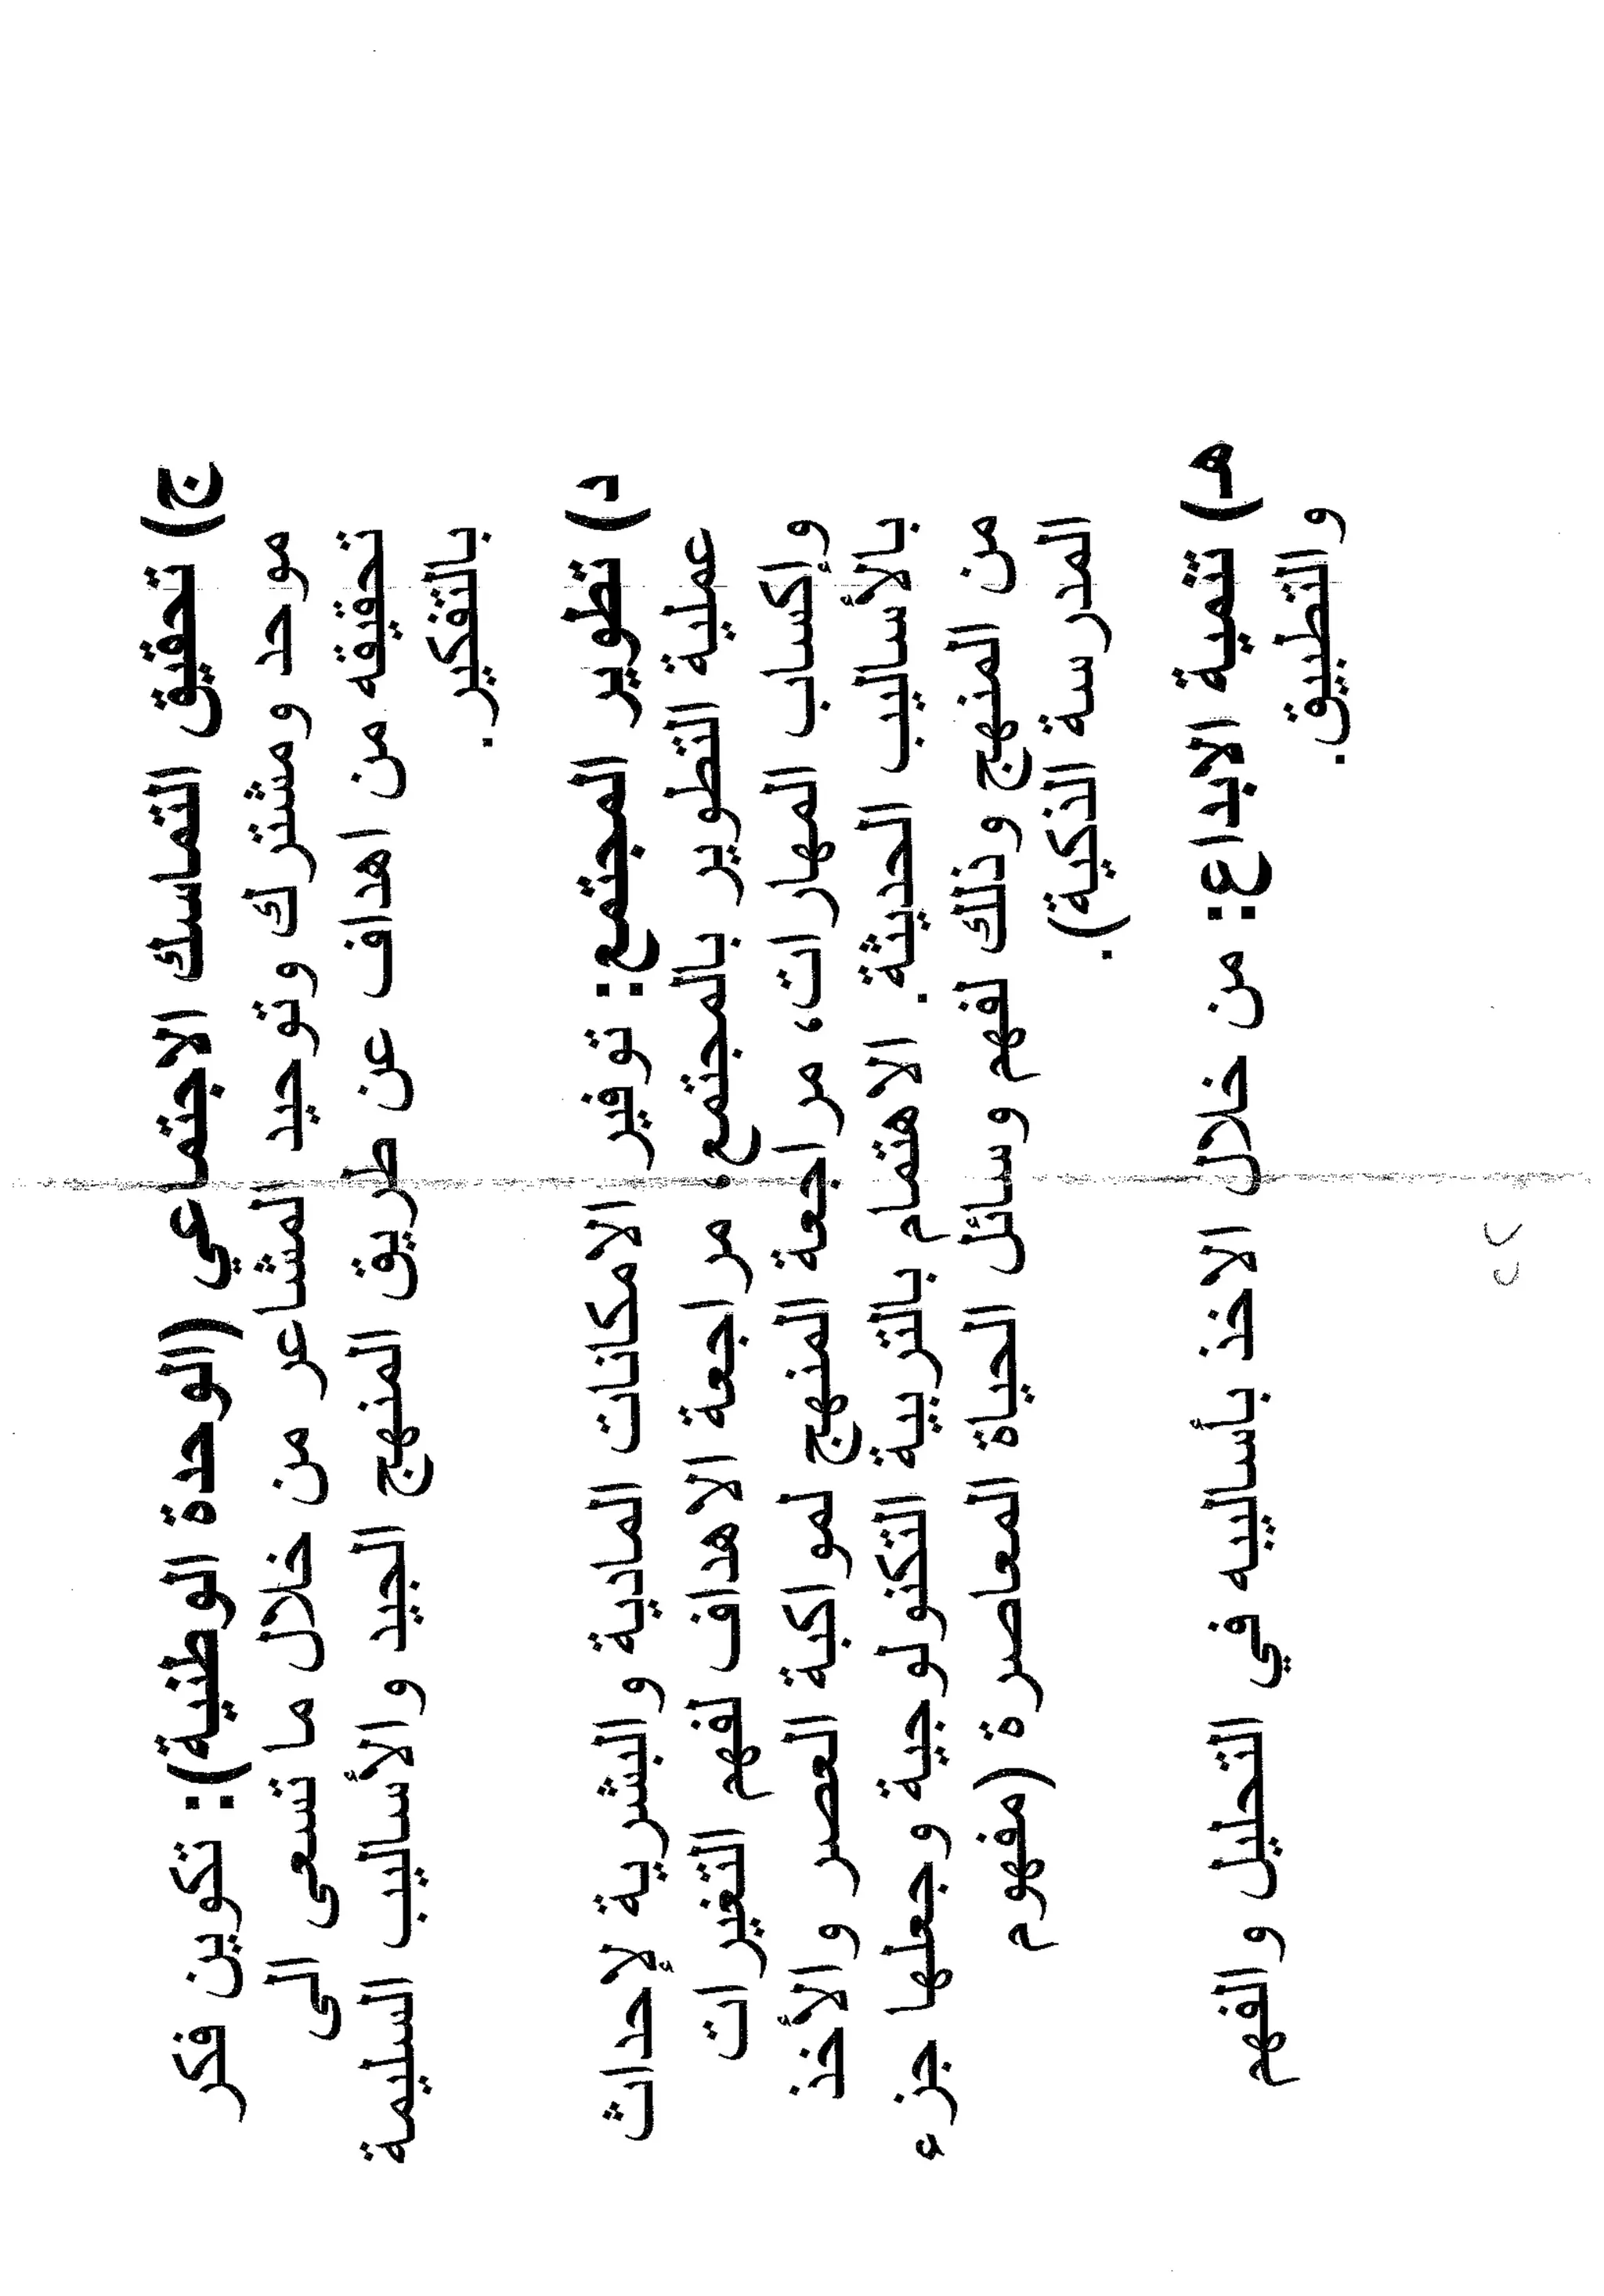 ج) تحقيق التماسك الاجتماعي (الوحدة الوطنية): تكوين فكر
موحد ومشترك وتوحيد المشاعر من خلال ما تسعى الى
تحقيقه من اهداف عن طريق المنهج الجيد والأساليب السليمة
بالتفكير.
د) تطوير المجتمع: توفير الامكانات المادية والبشرية لإحداث
عملية التطوير بالمجتمع، مراجعة الاهداف لفهم التغيرات
وإكساب المهارات، مراجعة المنهج لمواكبة العصر والأخذ
بالأساليب الحديثة. الاهتمام بالتربية التكنولوجية وجعلها جزء
من المنهج وذلك لفهم وسائل الحياة المعاصرة (مفهوم
المدرسة الذكية).
هـ) تنمية الابداع: من خلال الاخذ بأساليبه في التحليل والفهم
والتطبيق.